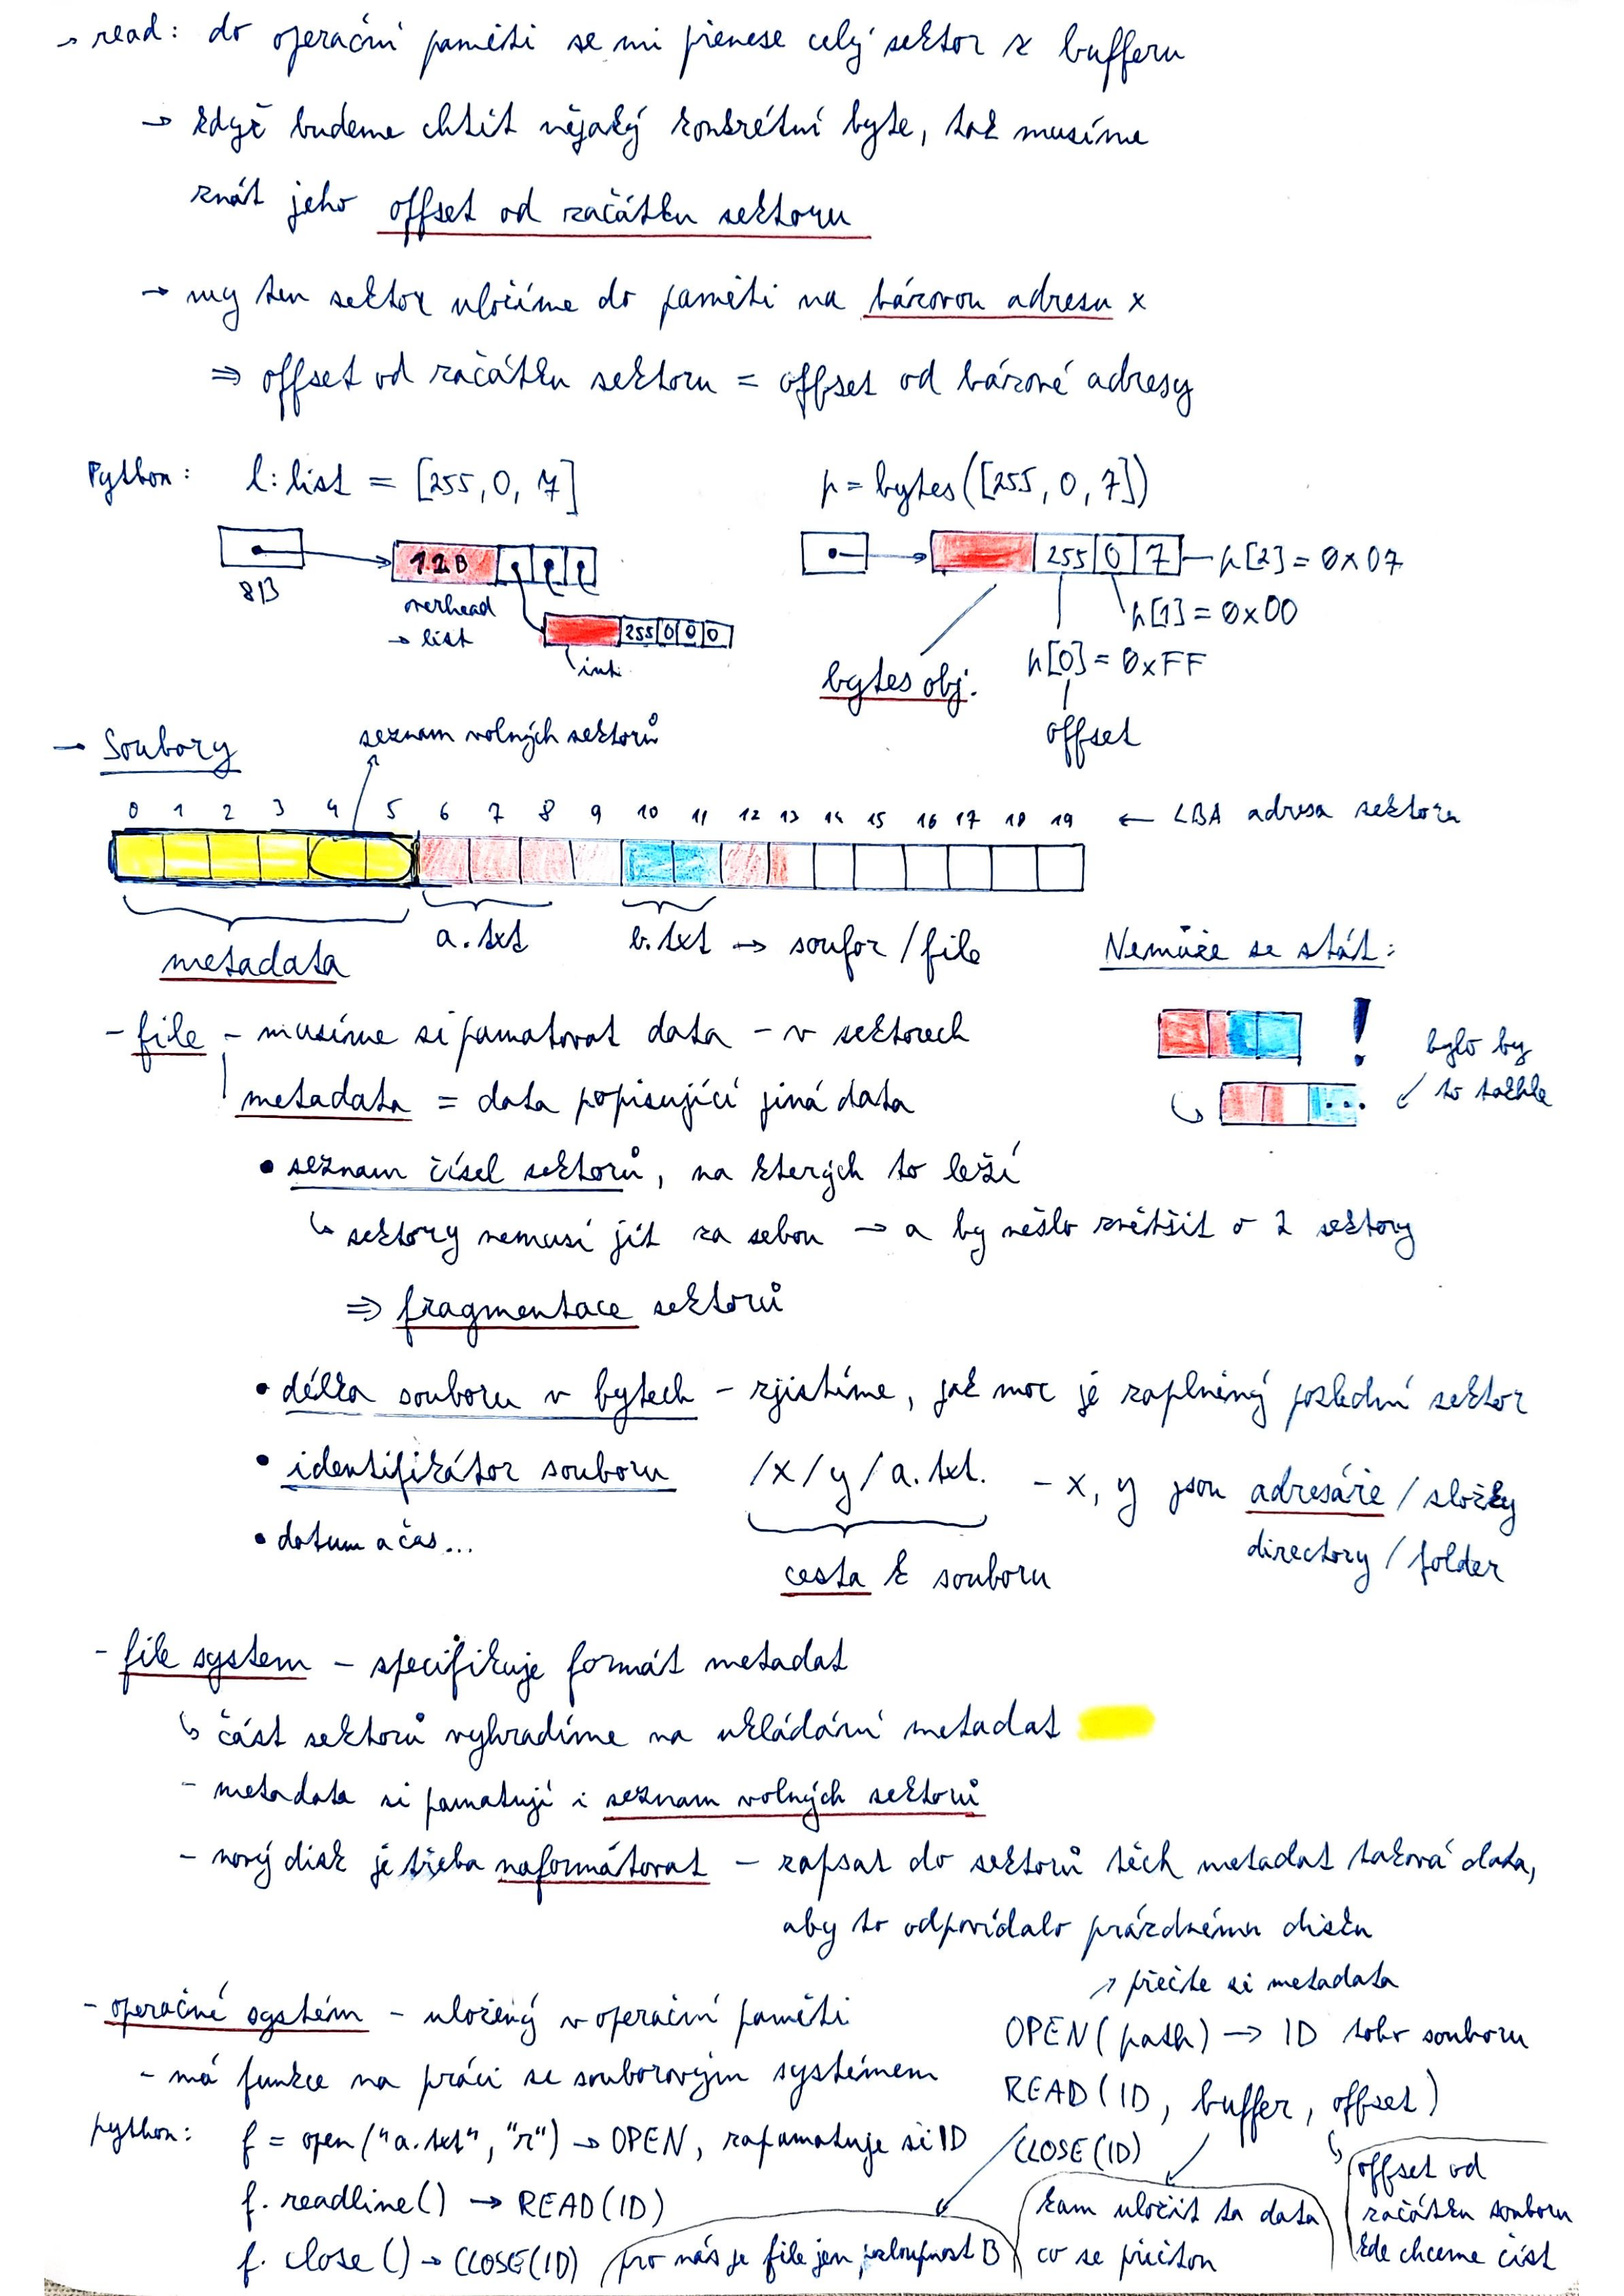 → read: do operační paměti se mi přenese celý sektor z bufferu
→ když budeme chtít nějaký konkrétní byte, tak musíme
znát jeho offset od začátku sektoru
→ my ten sektor uložíme do paměti na bázovou adresu x
⇒ offset od začátku sektoru = offset od bázové adresy
Python: l: list = [255, 0, 7]
p = bytes([255, 0, 7])
12B
8B
overhead
→ list
255 0 0 0
int
255 0 7
p[2] = 0x07
p[1] = 0x00
p[0] = 0xFF
bytes obj.
offset
→ Soubory
seznam volných sektorů
0 1 2 3 4 5 6 7 8 9 10 11 12 13 14 15 16 17 18 19 ← LBA adresa sektoru
metadata
a.txt
b.txt → soubor / file
Nemůže se stát:
!
bylo by
to takhle
- file - musíme si pamatovat data - v sektorech
metadata = data popisující jiná data
• seznam čísel sektorů, na kterých to leží
↳ sektory nemusí jít za sebou → a by nešlo zvětšit o 2 sektory
⇒ fragmentace sektorů
• délka souboru v bytech - zjistíme, jak moc je zaplněný poslední sektor
• identifikátor souboru /x/y/a.txt. - x, y jsou adresáře / složky
directory / folder
• datum a čas...
cesta k souboru
- file system - specifikuje formát metadat
↳ část sektorů vyhradíme na ukládání metadat
- metadata si pamatují i seznam volných sektorů
- nový disk je třeba naformátovat - zapsat do sektorů těch metadat taková data,
aby to odpovídalo prázdnému disku
- operačné systém - uložený v operační paměti
- má funkce na práci se souborovým systémem
↗ přečte si metadata
OPEN(path) → ID toho souboru
READ(ID, buffer, offset)
CLOSE(ID)
python: f = open("a.txt", "r") → OPEN, zapamatuje si ID
f. readline() → READ(ID)
f. close() → CLOSE(ID)
pro nás je file jen posloupnost B
kam uložit ta data
co se přečtou
offset od
začátku souboru
kde chceme číst